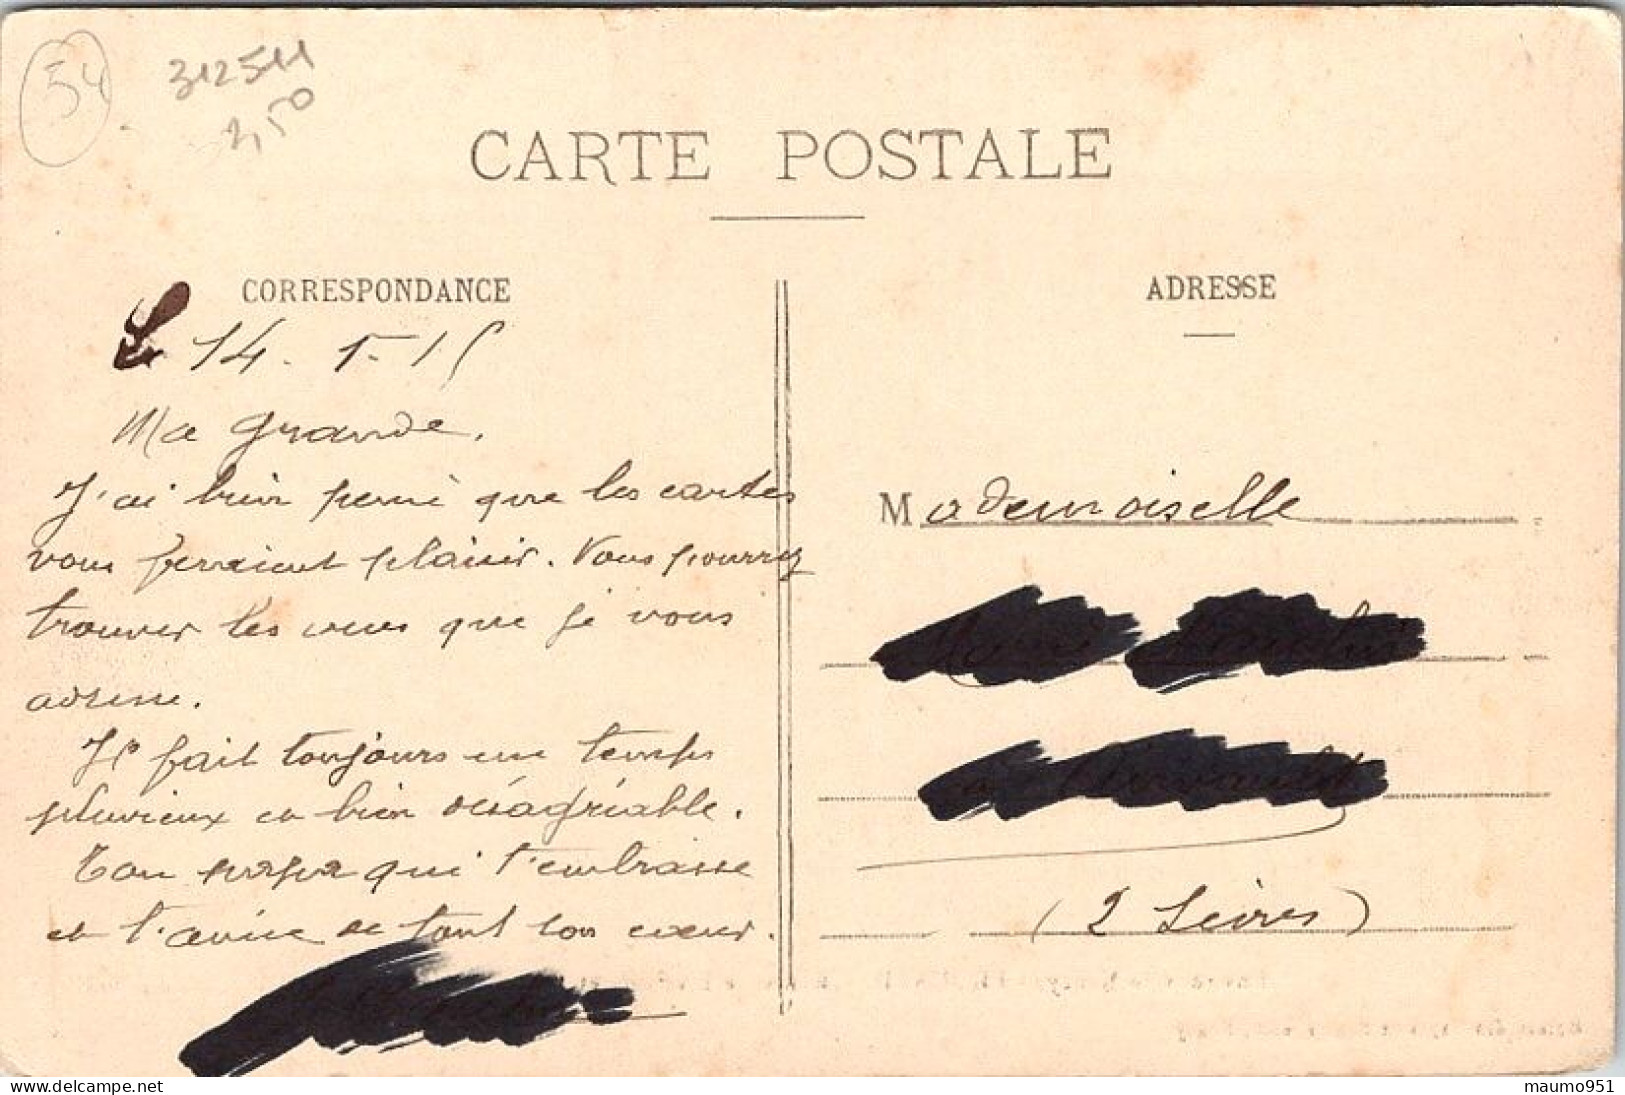 54
312511
2,50
CARTE POSTALE
CORRESPONDANCE
Le 14-1-15
Ma grande,
J'ai bien pensé que les cartes
vous feraient plaisir. Vous pourrez
trouver les vues que je vous
adresse.
Il fait toujours un temps
pluvieux et bien désagréable.
Ton papa qui t'embrasse
et t'aime de tout son cœur.
ADRESSE
Mademoiselle
(2 Sèvres)
maumo951